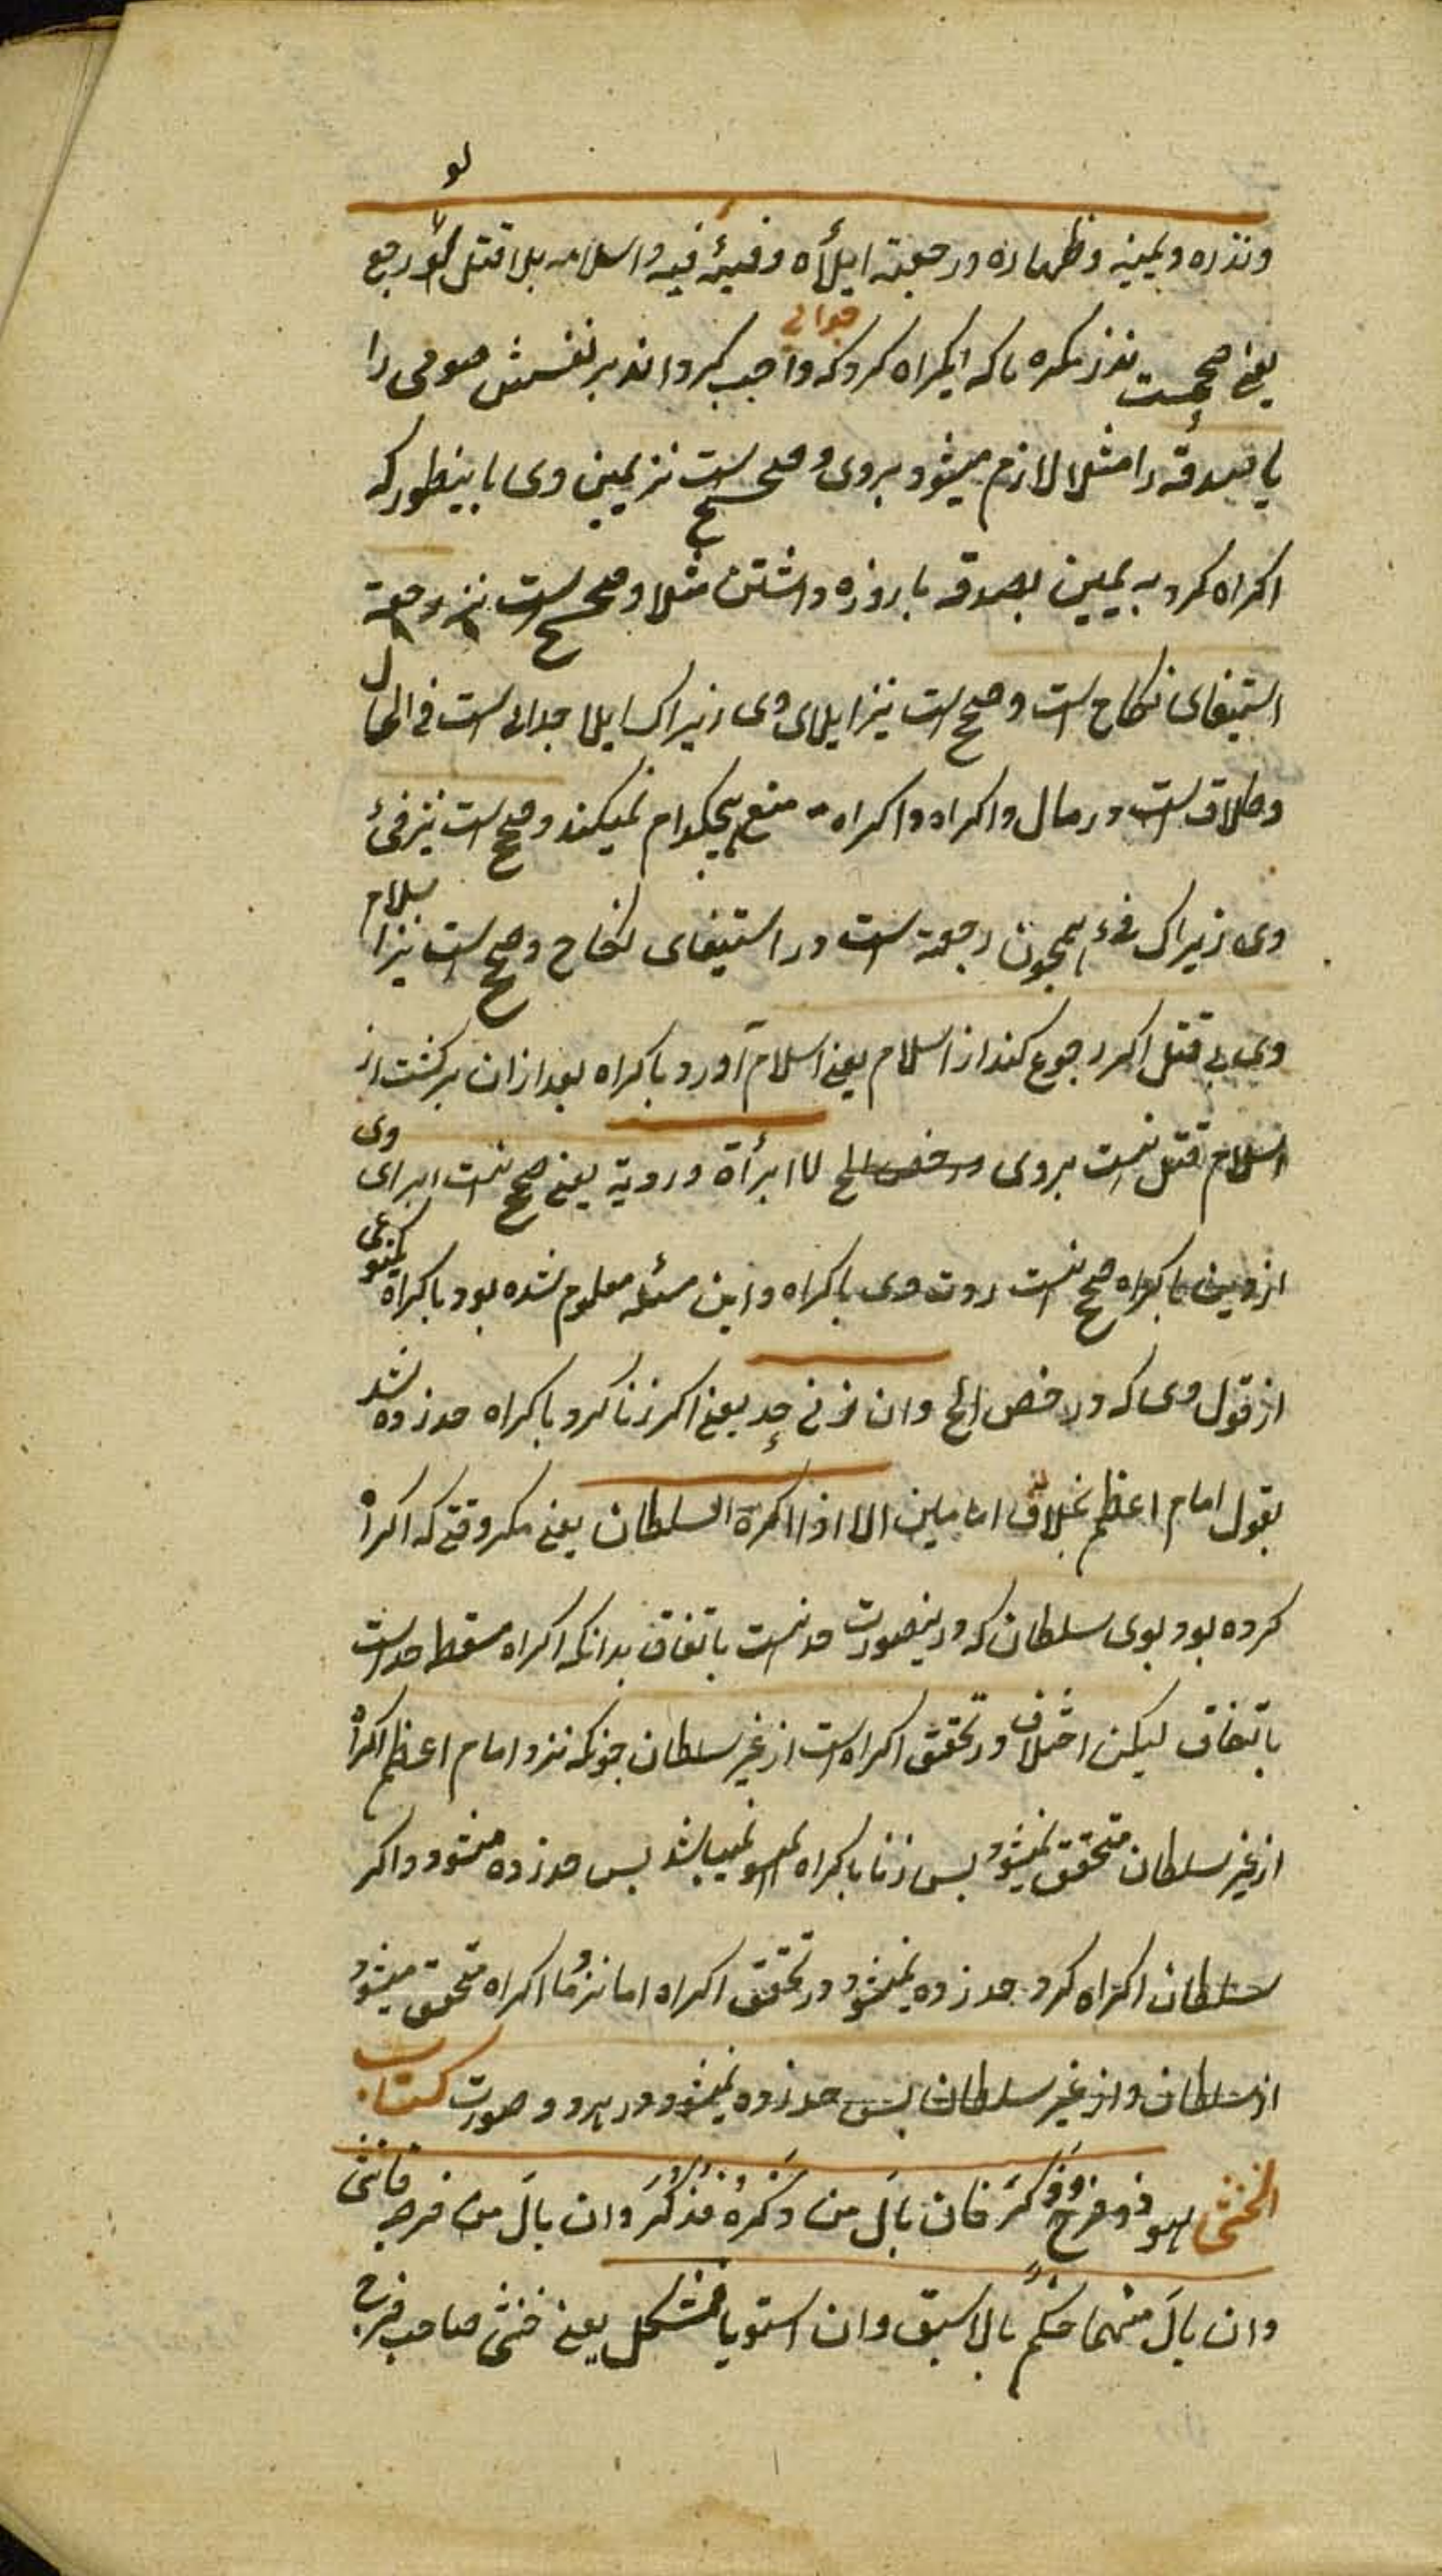 لو
ونذره ویمینه وظهاره ورجعته ایلأه وفیئه فیه واسلامه بلا قتل لو رجع
یعنی صحیحست نذر مکره باکه اکراه کرد که واجب کرداند بر نفسش صومی را
یا صدقه را مثلا لازم میشود بروی وصحیح است نیز یمین وی باینطور که
اکراه کرد به یمین بصدقه یا روزه داشتن مثلا وصحیح است نیز رجعة
استیفای نکاح است وصحیح است نیز ایلای وی زیراک ایلا جدای است فی الحال
وطلاق است در مال واکراه منع هیچکدام نمیکند وصحیح است نیز فئ
وی زیراک فئ همچون رجعة است در استیفای نکاح وصحیح است نیز اسلام
وی بی قتل اکر رجوع کند از اسلام یعنی اسلام آورد باکراه بعد ازان برکشت از
اسلام قتل نیست بروی ورخص الخ لا ابرأة وردیة یعنی صحیح نیست ابرای وی
از دین باکراه صحیح نیست ردت وی باکراه واین مسئله معلوم شده بود باکراه
از قول وی که ورخص الخ وان زنی حد یعنی اکر زنا کرد باکراه حد زده شد
بقول امام اعظم بخلاف امامین الا اذا اکرة السلطان یعنی مکر وقتی که اکراه
کرده بود بوی سلطان که درینصورت حد نیست باتفاق بدانکه اکراه مسقط حد است
باتفاق لیکن اختلاف در تحقق اکراه است از غیر سلطان چونکه نزد امام اعظم اکراه
از غیر سلطان متحقق نمیشود بس زنا باکراه نمیباشد بس حد زده میشود واکر
سلطان اکراه کرد حد زده نمیشود در تحقق اکراه اما نزد ما اکراه متحقق میشود
از سلطان واز غیر سلطان بس حد زده نمیشود در هر دو صورت کتاب
الخنثی هو ذو فرج وذکر فان بال من ذکره فذکر وان بال من فرجه فانثی
وان بال منهما حکم بالاسبق وان استویا فمشکل یعنی خنثی صاحب فرج